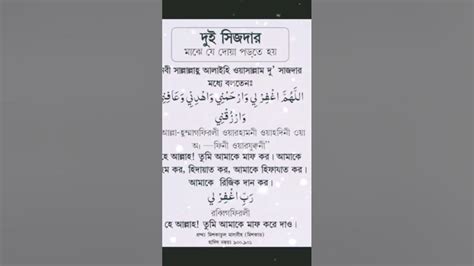 দুই সিজদার
মাঝে যে দোয়া পড়তে হয়
বী সাল্লাল্লাহু আলাইহি ওয়াসাল্লাম দু’ সাজদার
মধ্যে বলতেনঃ
اَللّٰهُمَّ اغْفِرْ لِي وَارْحَمْنِي وَاهْدِنِي وَعَافِنِي
وَارْزُقْنِي
আল্লা-হুম্মাগফিরলী ওয়ারহামনী ওয়াহদিনী ওয়া
আ —ফিনী ওয়ারযুক্বনী”
হে আল্লাহ! তুমি আমাকে মাফ কর। আমাকে
ম কর, হিদায়াত কর, আমাকে হিফাযাত কর।
আমাকে রিজিক দান কর।
رَبِّ اغْفِرْ لِي
রব্বিগফিরলী
হে আল্লাহ! তুমি আমাকে মাফ করে দাও।
হাদিস নম্বরঃ ৯০০,৯০১